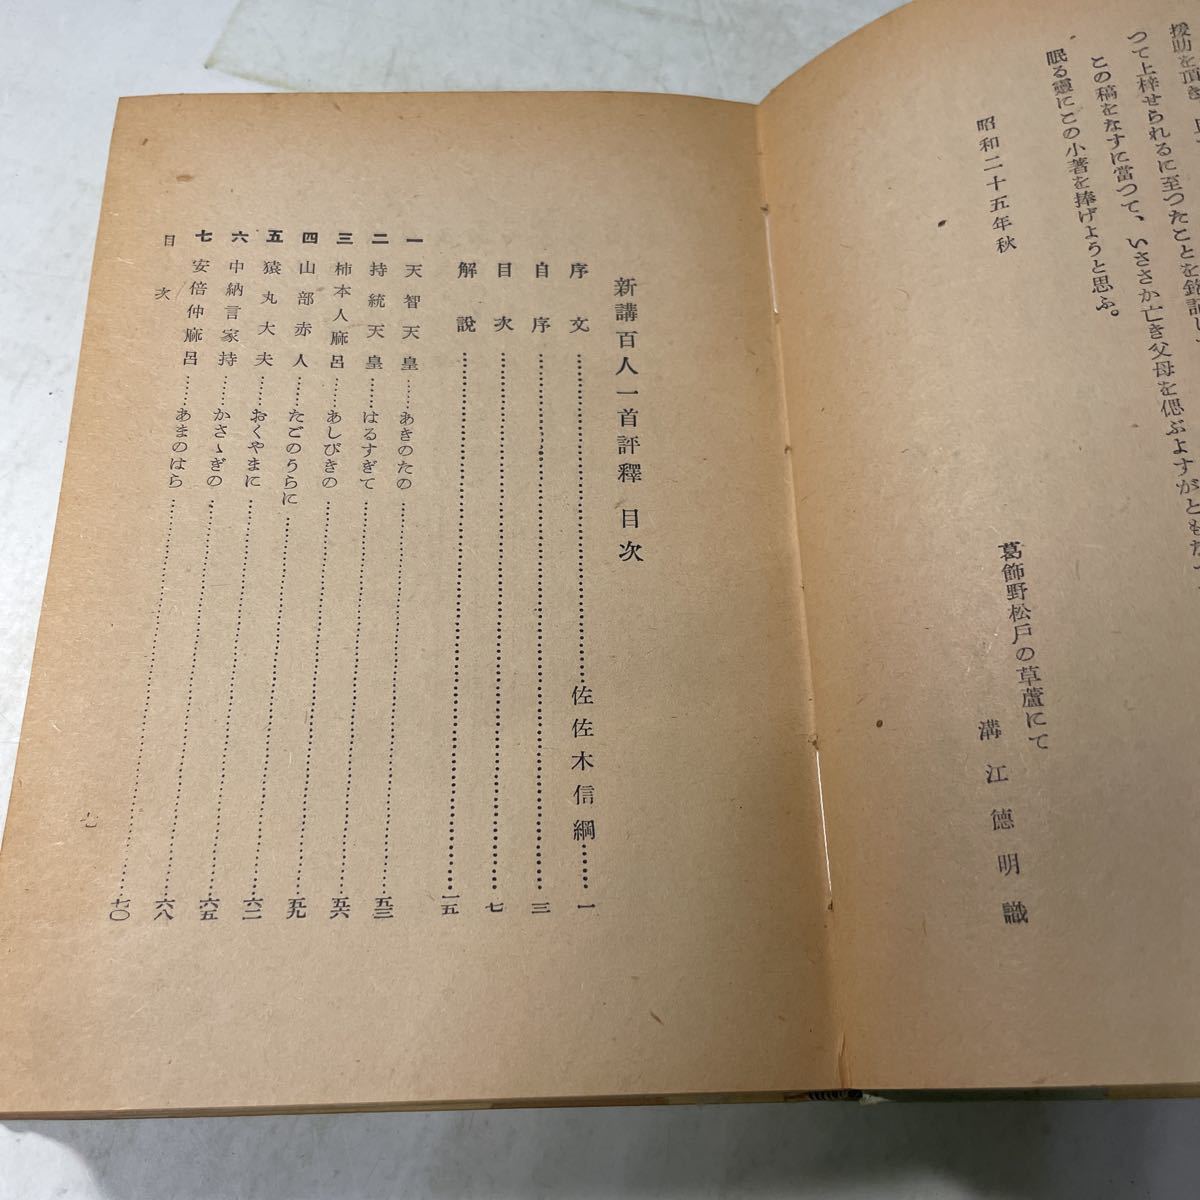 援助を頂き
つて上梓せられるに至つたことを銘記し、
この稿をなすに當つて、いささか亡き父母を偲ぶよすがともな
眠る靈にこの小著を捧げようと思ふ。
昭和二十五年秋
葛飾野松戸の草蘆にて
溝江德明識
新講百人一首評釋 目次
序文……佐佐木信綱……一
自序……三
目次……七
解說……一五
一 天智天皇……あきのたの……五三
二 持統天皇……はるすぎて……五六
三 柿本人麻呂……あしびきの……五九
四 山部赤人……たごのうらに……六二
五 猿丸大夫……おくやまに……六五
六 中納言家持……かさゝぎの……六八
七 安倍仲麻呂……あまのはら……七〇
目次
七